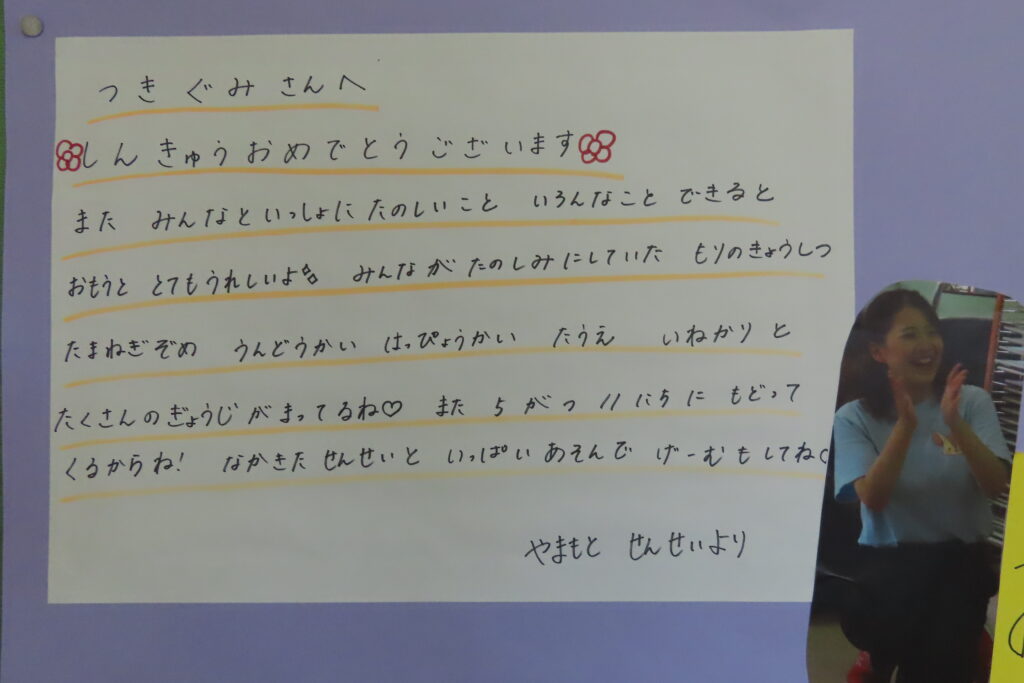 つき ぐみ さんへ
しん きゅう おめでとう ございます
また みんなと いっしょに たのしいこと いろんなこと できると
おもうと とてもうれしいよ♪ みんなが たのしみにしていた もりのきょうしつ
たまねぎぞめ うんどうかい はっぴょうかい たうえ いねかり と
たくさんのぎょうじ がまってるね♡ また 5 がつ 11 にちに もどって
くるからね! なかきた せんせいと いっぱい あそんで げーむも してね
やまもと せんせいより